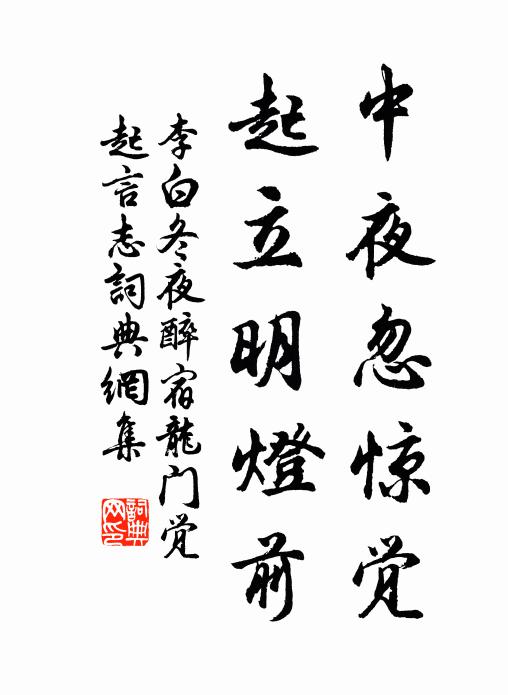 中夜忽惊觉
起立明燈前
李白冬夜醉宿龍门觉
起言志詞典網集
詞典
网印